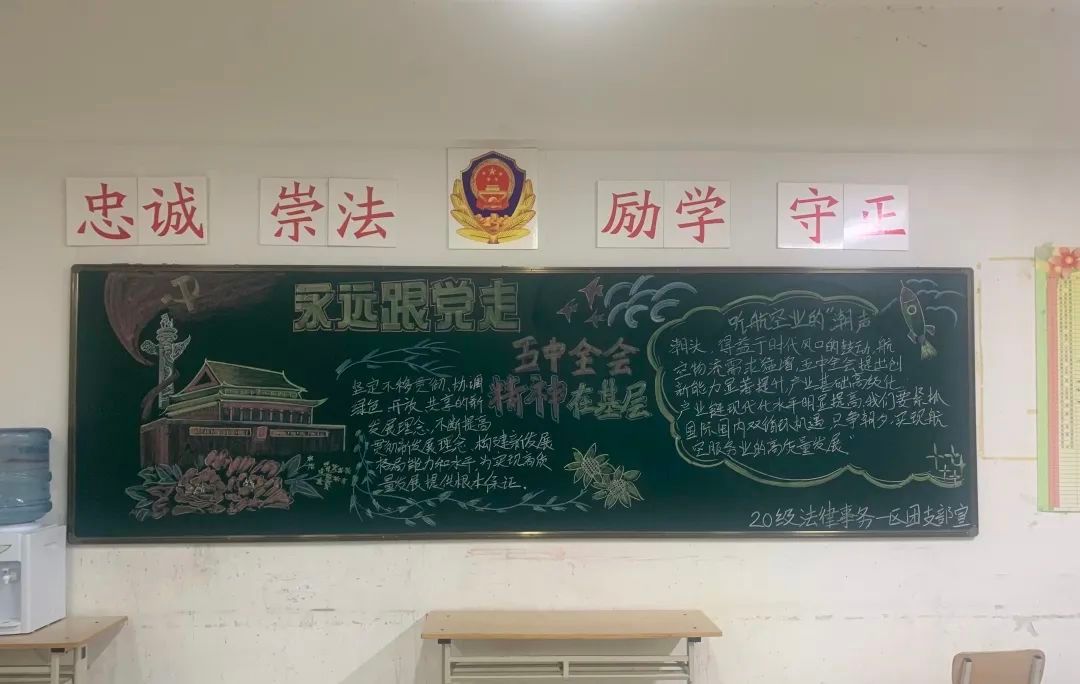 忠诚 崇法 励学 守正
永远跟党走
五中全会
精神在基层
坚定不移贯彻、协调
绿色、开放、共享的新
发展理念,不断提高
贯彻新发展理念,构建新发展
格局能力和水平,为实现高质
量发展提供根本保证。
吹航空业的“潮声
潮头,得益于时代风口的鼓动,航
空物流需求猛增,五中全会提出创
新能力显著提升,产业基础高级化
产业链现代化水平明显提高,我们要紧扒
国际国内双循环机遇,只争朝夕,实现航
空服务业的高质量发展”
20级法律事务一区团支部宣